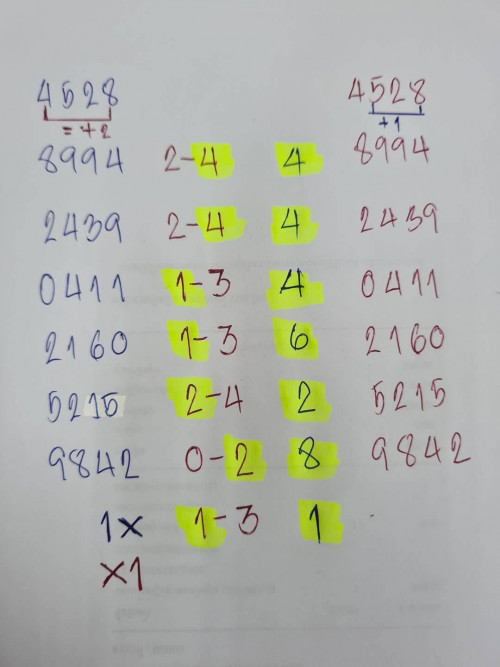 4528 4528
=+2 +1
8994 2-4 4 8994
2439 2-4 4 2439
0411 1-3 4 0411
2160 1-3 6 2160
5215 2-4 2 5215
9842 0-2 8 9842
1x 1-3 1
x1